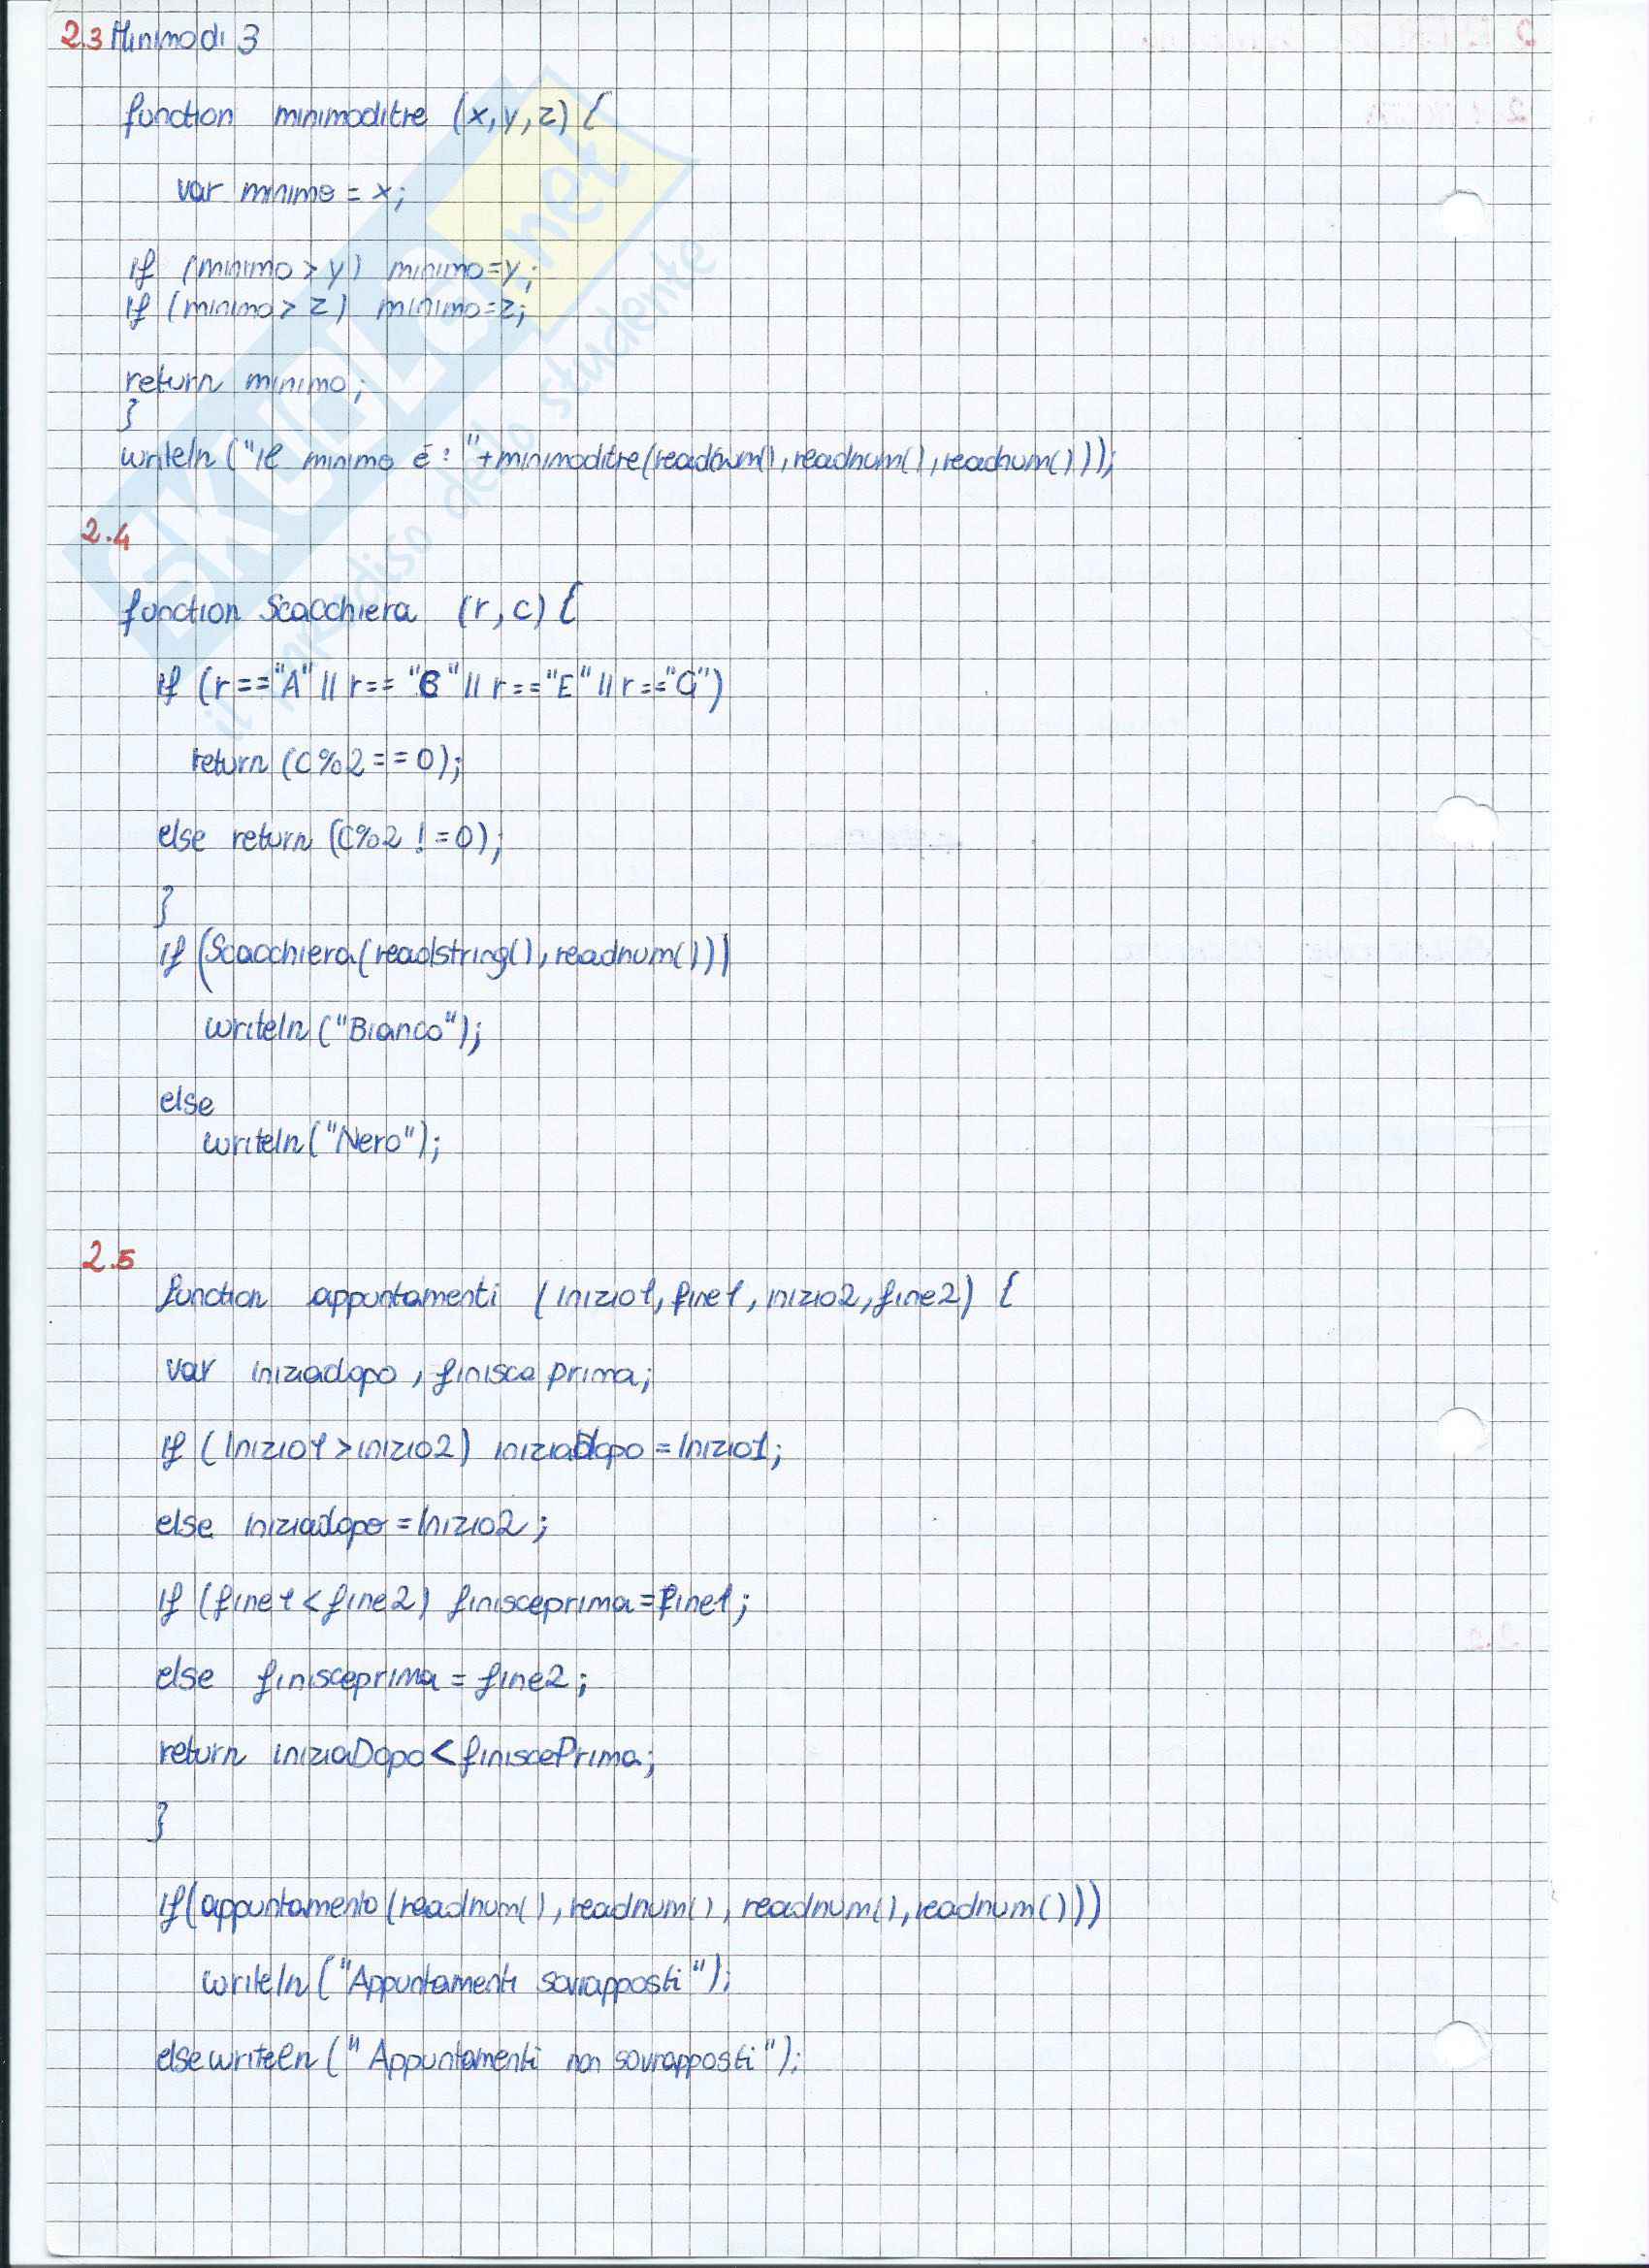 2.3 Minimo di 3
function minimoditre (x,y,z) {
var minimo = x;
if (minimo > y) minimo=y;
if (minimo > z) minimo=z;
return minimo;
}
writeln ("il minimo é: "+minimoditre(readnum(),readnum(),readnum()));
2.4
function Scacchiera (r,c) {
if (r=="A" || r== "B" || r=="E" || r=="G")
return (c%2==0);
else return (c%2 !=0);
}
if (Scacchiera(readstring(),readnum()))
writeln ("Bianco");
else
writeln ("Nero");
2.5
function appuntamenti (inizio1, fine1, inizio2, fine2) {
var iniziadopo, finisce prima;
if (inizio1 > inizio2) iniziaDopo = inizio1;
else iniziadopo = inizio2;
if (fine1 < fine2) finisceprima = fine1;
else finisceprima = fine2;
return iniziaDopo < finiscePrima;
}
if (appuntamento (readnum(), readnum(), readnum(), readnum()))
writeln ("Appuntamenti sovrapposti");
else writeln (" Appuntamenti non sovrapposti");
SKUOLA.net
il paradiso dello studente